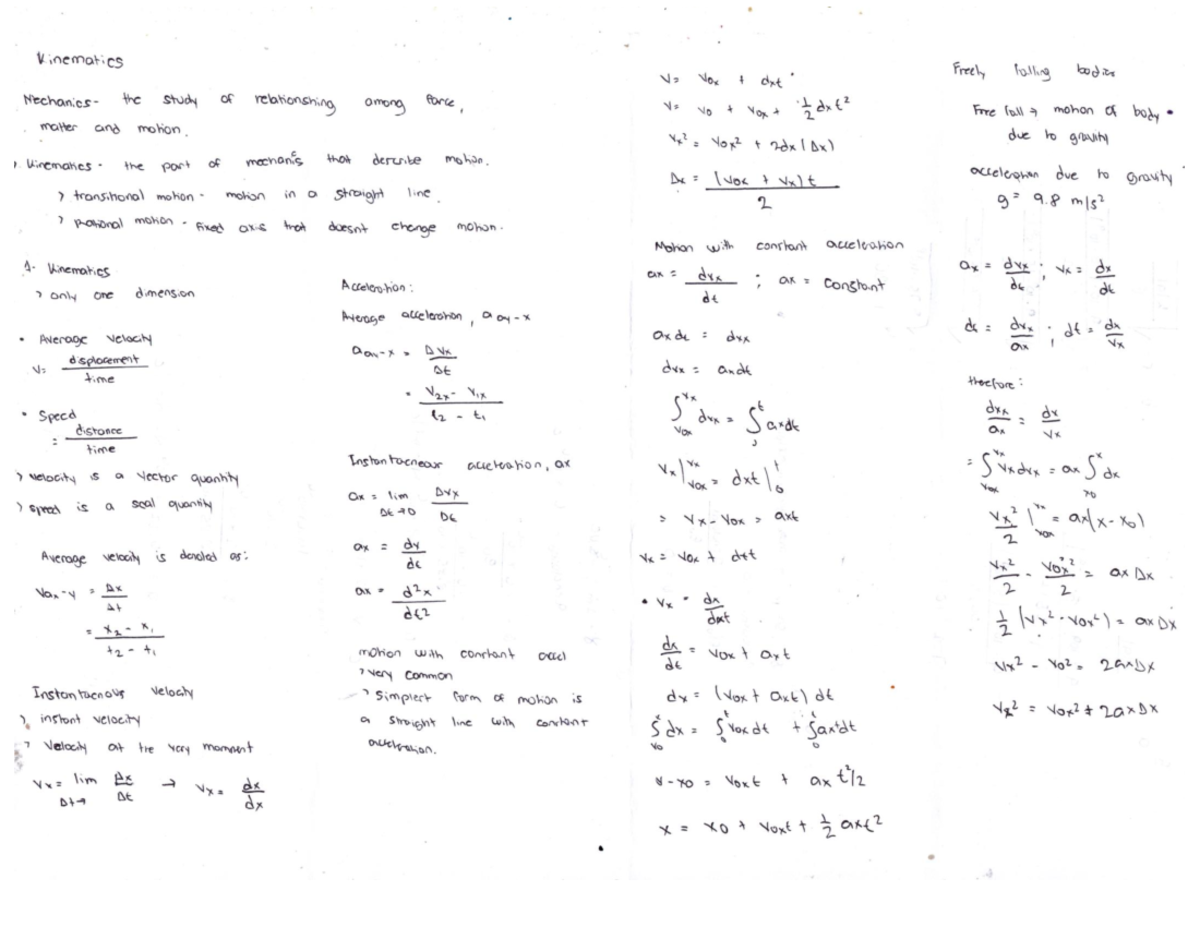 Kinematics
Mechanics - the study of relationshing among force,
matter and motion.
1. Kinematics - the part of mechanics that describe motion.
> transitional motion - motion in a straight line.
> Rotional motion - fixed axis that doesnt change motion.
1. Kinematics
> only one dimension
• Average velocity
V= displacement
time
• Speed
= distance
time
> velocity is a vector quantity
> speed is a scal quantity
Average velocity is denoted as:
= Δx
Δt
= x2 - x1
t2 - t1
Instantaenous velocity
> instant velocity
> Velocity at the very moment
Vx = lim Δx → Vx = dx
Δt→ Δt dx
Acceleration:
Average acceleration, a av-x
a av-x = ΔVx
Δt
= V2x - V1x
t2 - t1
Instantaenous acceleration, ax
ax = lim ΔVx
Δt→0 Δt
ax = dv
dt
ax = d²x
dt²
motion with constant accel
> very common
> simplest form of motion is
a straight line with constant
acceleration.
V= Vox + axt
V= Vo + Vox + ½ axt²
Vx² = Vox² + 2ax (Δx)
Δx = (Vox + Vx)t
2
Motion with constant acceleration
ax = dvx ; ax = constant
dt
axdt = dvx
dvx = axdt
∫ dvx = ∫ axdt
Vx | = axt |
= Vx - Vox = axt
Vx = Vox + axt
• Vx = dx
dx = Vox + axt
dt
dx = (Vox + axt) dt
∫ dx = ∫ Vox dt + ∫ axtdt
x - xo = Voxt + ax t²/2
x = xo + Voxt + ½ axt²
Freely falling bodies
Free fall → motion of body
due to gravity
acceleration due to gravity
g = 9.8 m/s²
ax = dvx ; Vx = dx
dt dt
dt = dvx ; dt = dx
ax Vx
therefore:
dvx = dx
ax Vx
= ∫ Vxdvx = ax ∫ dx
Vx² | = ax(x - xo)
2
Vx² - Vox² = ax Δx
2 2
½ (Vx² - Vox²) = ax Δx
Vx² - Vo² = 2axΔx
Vx² = Vox² + 2axΔx